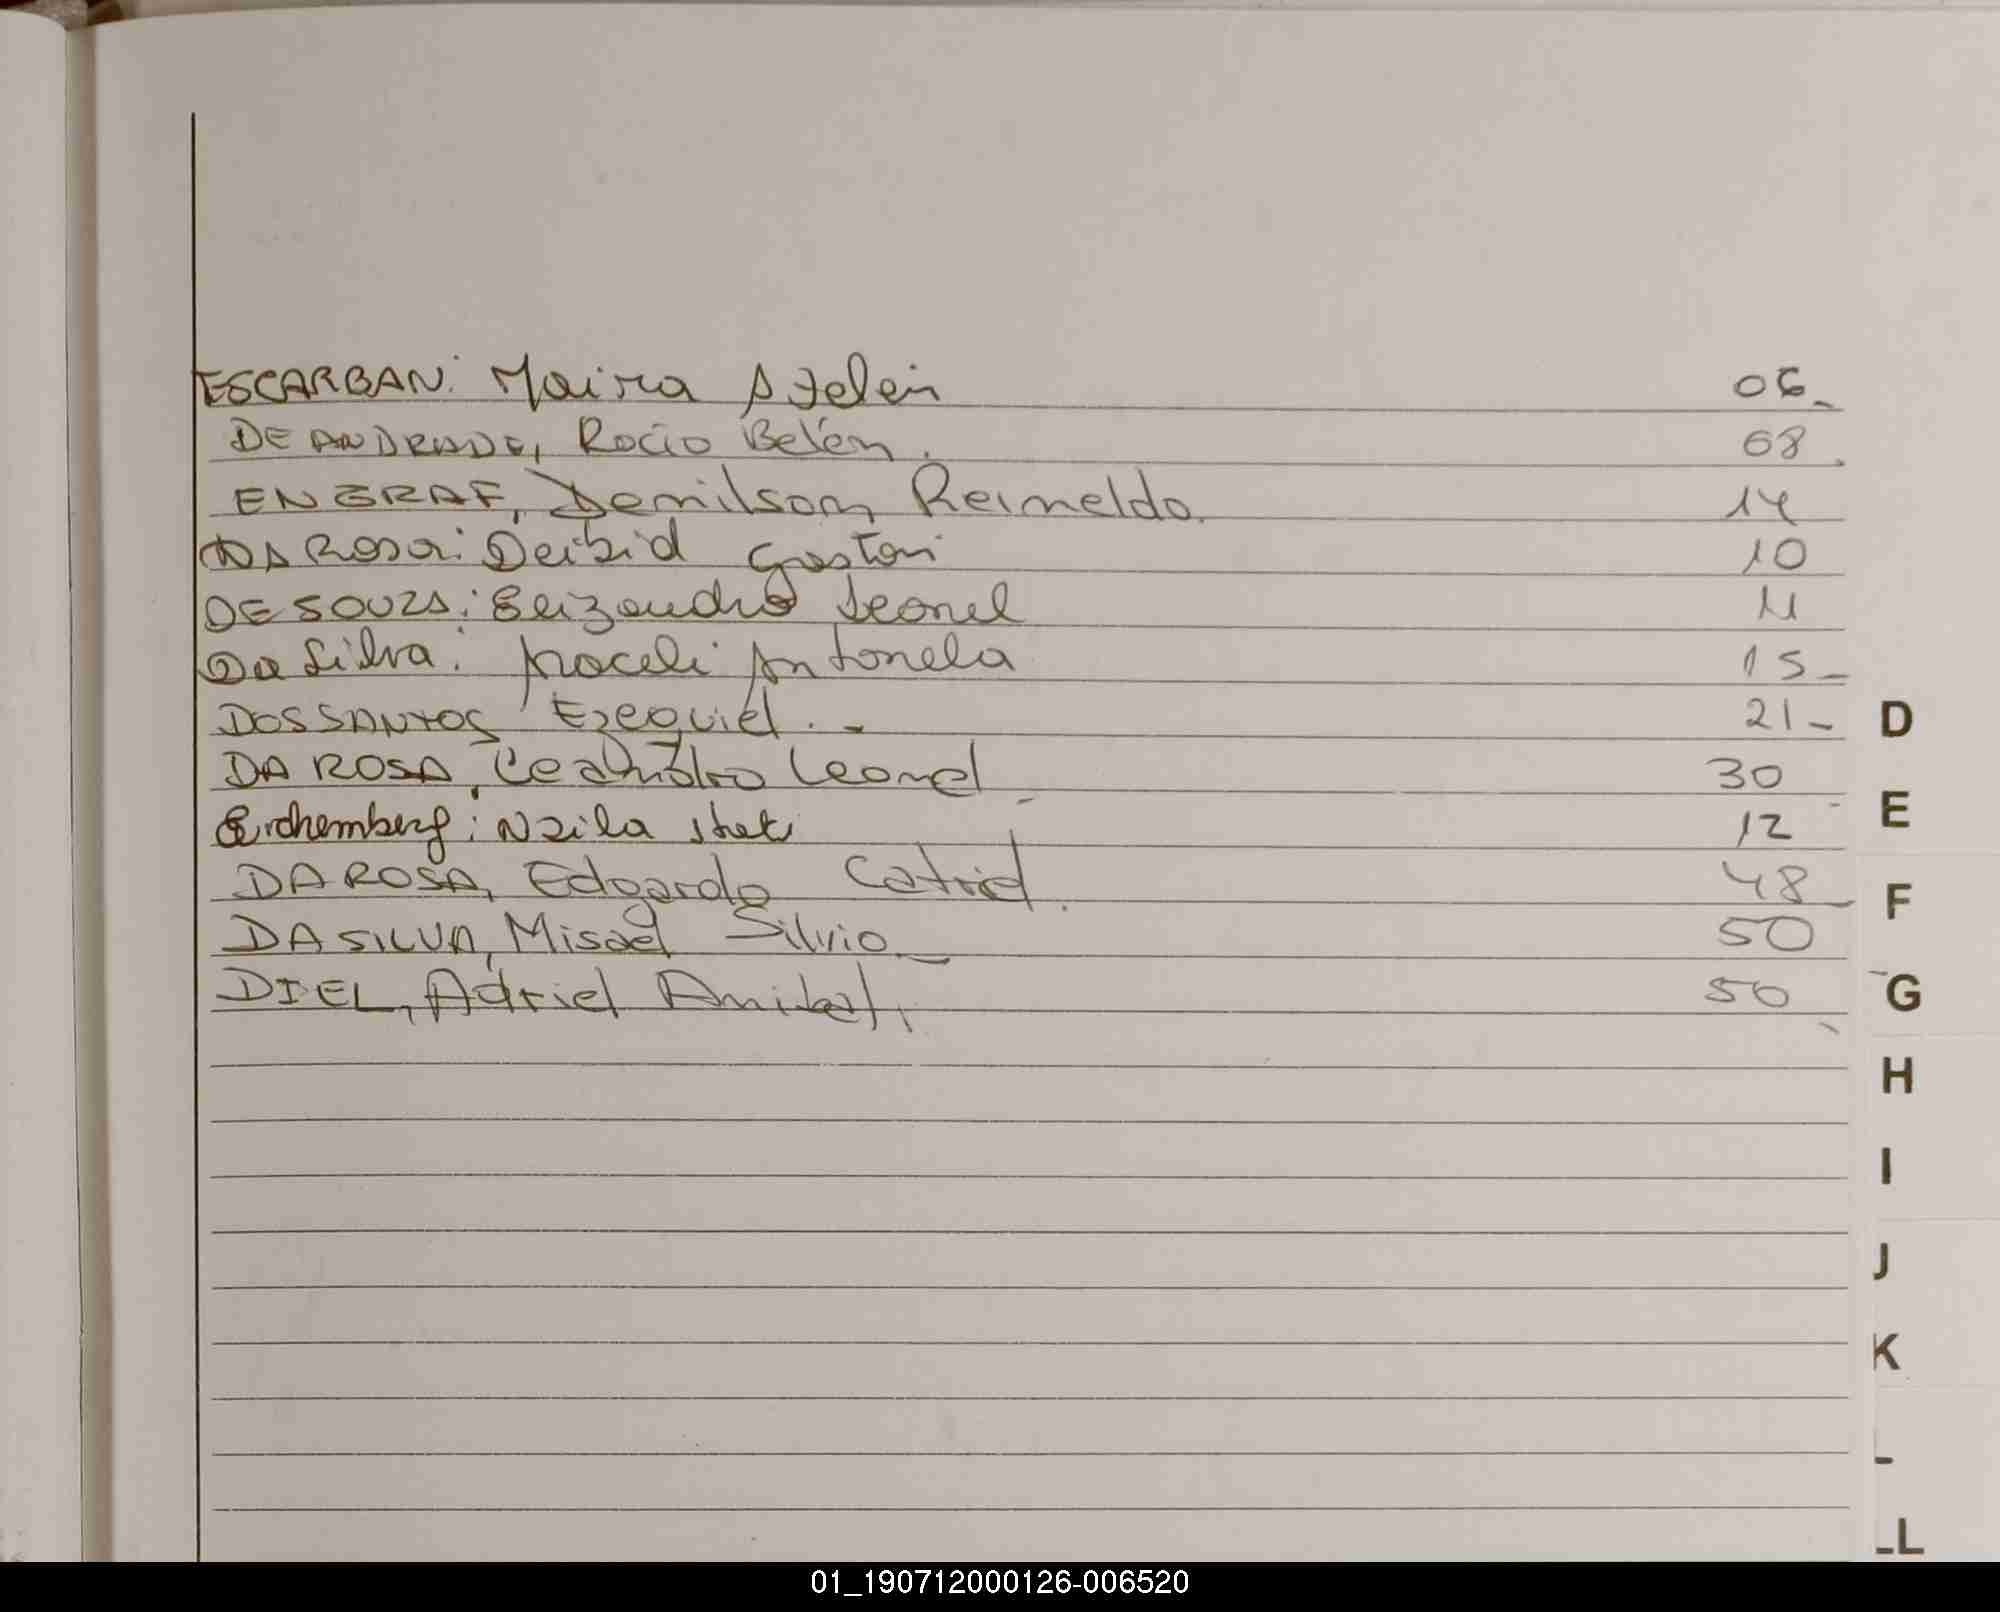 ESCARBAN: Maira Ayelen 06_
DE ANDRADE, Rocio Belén. 08.
ENGRAF, Demilson Reineldo. 14
DA Rosa: Deibid Gaston 10
DE SOUZA: Elizandro Leonel 11
Da Silva: Araceli Antonela 15_
DOS SANTOS Ezequiel. - 21_
DA ROSA, Leandro Leonel 30
Naila 12
DA ROSA, Edgardo Catriel. 48_
DA SILVA, Misael Silvio_ 50
DIEL, Adriel Anibal. 50
D
E
F
G
H
I
J
K
L
LL
01_190712000126-006520